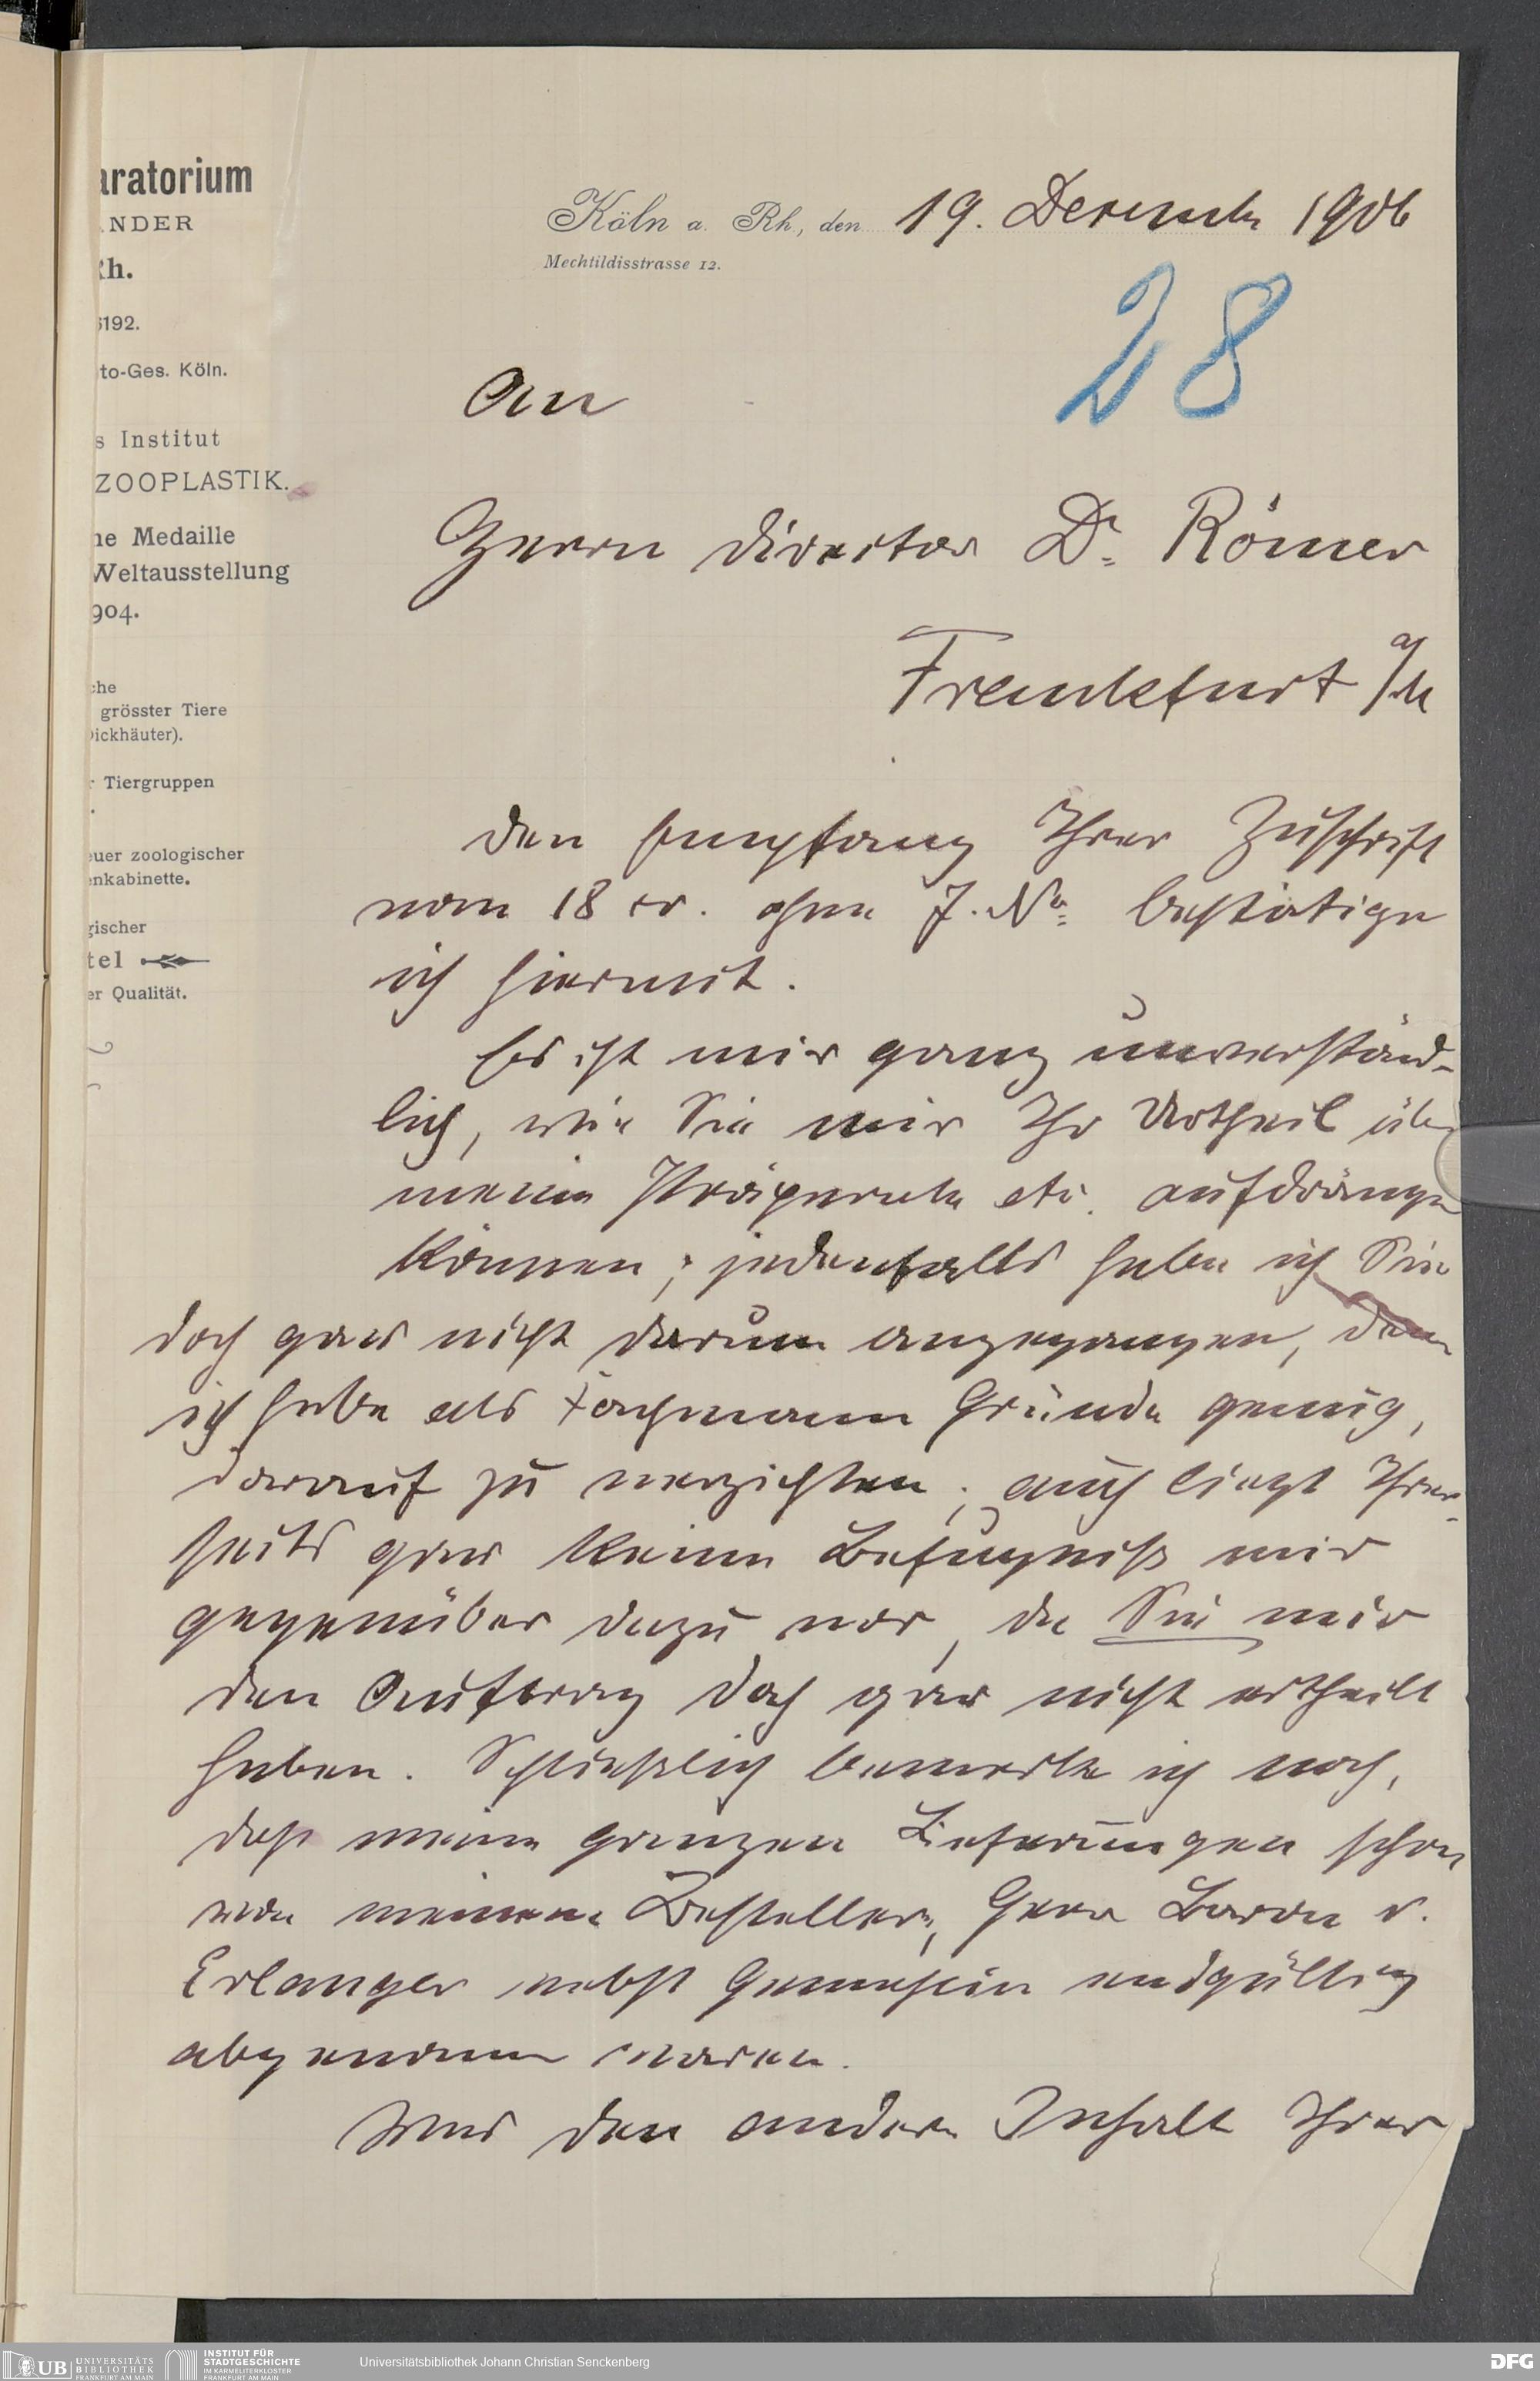 aratorium
ANDER
Rh.
6192.
to-Ges. Köln.
s Institut
ZOOPLASTIK.
ne Medaille
Weltausstellung
904.
che
grösster Tiere
Dickhäuter).
r Tiergruppen
euer zoologischer
enkabinette.
gischer
tel
er Qualität.
Köln a. Rh, den 19. Dezember 1906
Mechtildisstrasse 12.
28
An
Herrn Director Dr. Römer
Frankfurt a/M
Den Empfang Ihrer Zuschrift
vom 18 cr. ohne J. No. bestätige
ich hiermit.
Es ist mir ganz unverständ-
lich, wie Sie mir Ihr Urtheil über
meine Präparate etc. aufdrängen
können; jedenfalls habe ich Sie
doch gar nicht darum angegangen, denn
ich habe als Fachmann Gründe genug,
darauf zu verzichten; auch liegt Ihrer-
seits gar keine Befugniß mir
gegenüber dazu vor, da Sie mir
den Auftrag doch gar nicht ertheilt
haben. Schließlich bemerke ich noch,
daß meine ganzen Lieferungen schon
von meinem Besteller, Herr Baron v.
Erlanger nebst Gemahlin endgültig
abgenommen waren.
Was den andern Inhalt Ihrer
UB UNIVERSITÄTS
BIBLIOTHEK
FRANKFURT AM MAIN
INSTITUT FÜR
STADTGESCHICHTE
IM KARMELITERKLOSTER
FRANKFURT AM MAIN
Universitätsbibliothek Johann Christian Senckenberg
DFG